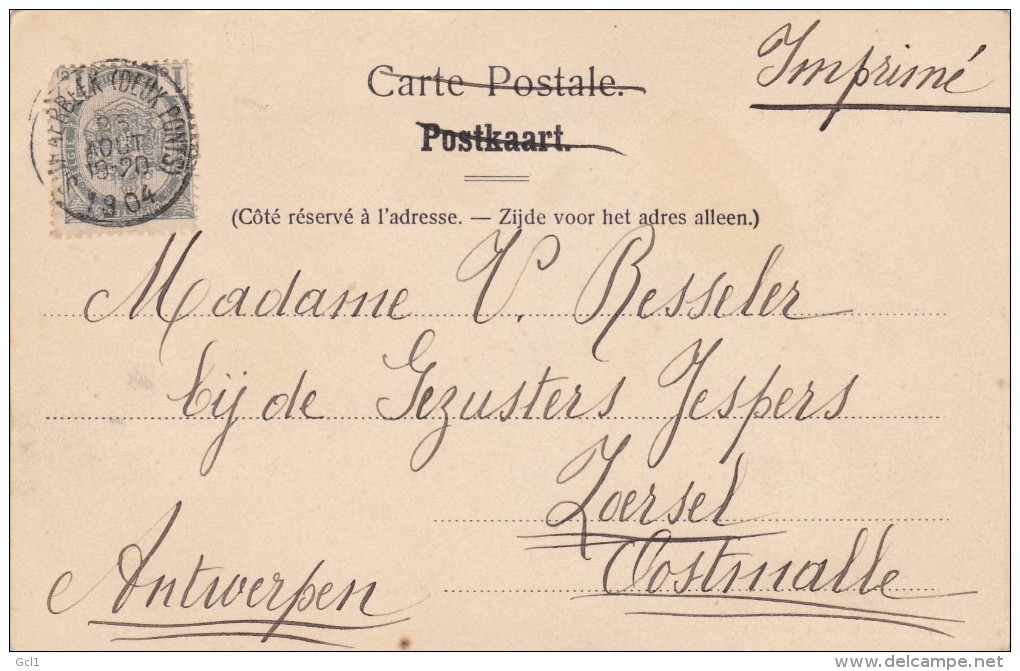 Imprimé
Carte Postale.
Postkaart.
(Côté réservé à l'adresse. — Zijde voor het adres alleen.)
(DEUX PONTS)
AOUT
1904
Madame V. Besseler
bij de Gezusters Jespers
Zoersel
Oostmalle
Antwerpen
Gcl1
delcampe.net